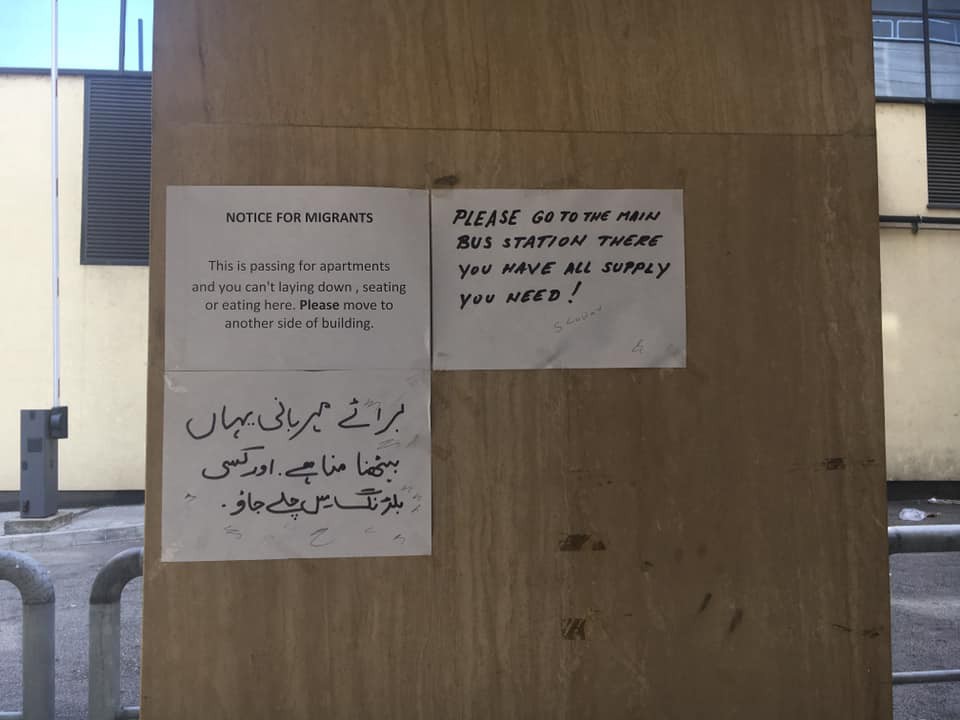 NOTICE FOR MIGRANTS
This is passing for apartments
and you can't laying down , seating
or eating here. Please move to
another side of building.
PLEASE GO TO THE MAIN
BUS STATION THERE
YOU HAVE ALL SUPPLY
YOU NEED!
برائے مہربانی یہاں
بیٹھنا منا ہے. اور کسی
بلڈنگ میں چلے جاؤ.